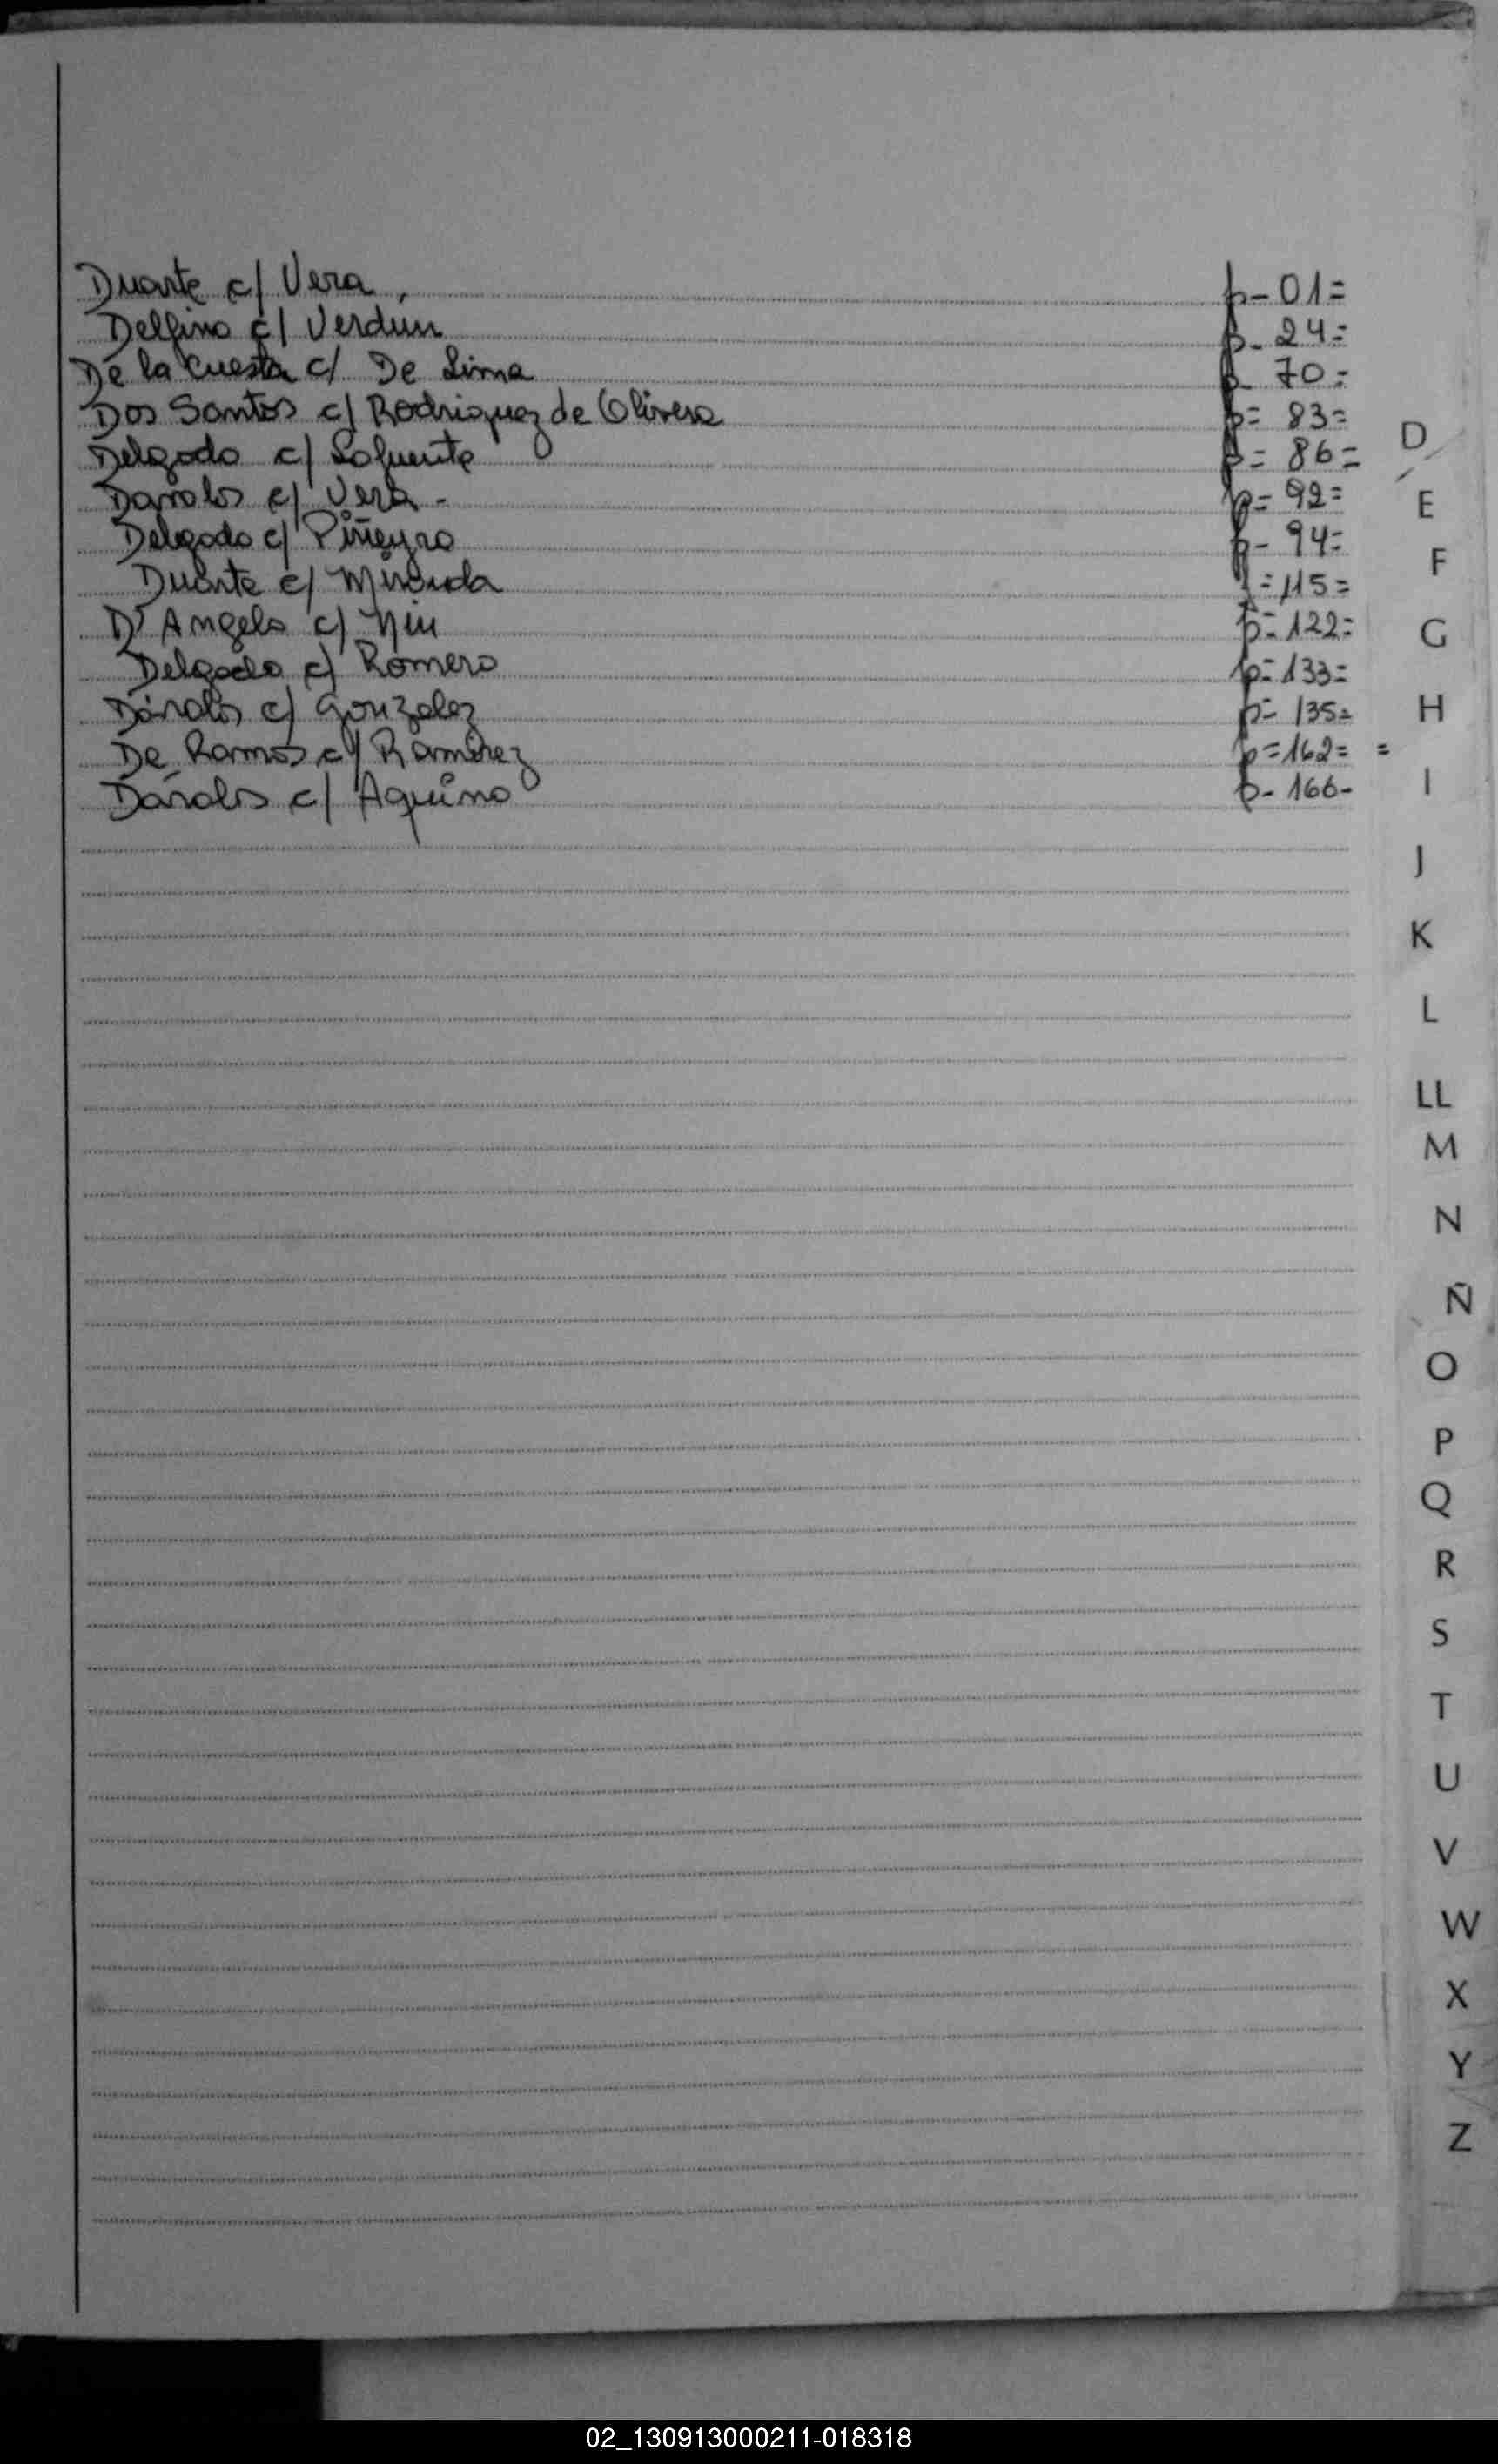 Duarte c/ Vera, p- 01=
Delfino c/ Verdun p- 24=
De la Cuesta c/ De Lima p- 70=
Dos Santos c/ Rodriguez de Olivera p= 83=
Delgado c/ Lafuente p= 86=
Davalos c/ Vera - p= 92=
Delgado c/ Piñeyro p- 94=
Duarte c/ Miranda p=115=
D'Angelo c/ Niu p=122=
Delgado c/ Romero p=133=
Dávalos c/ Gonzalez p= 135=
De Ramos c/ Ramirez p=162= =
Dávalos c/ Aquino p- 166-
D
E
F
G
H
I
J
K
L
LL
M
N
Ñ
O
P
Q
R
S
T
U
V
W
X
Y
Z
02_130913000211-018318